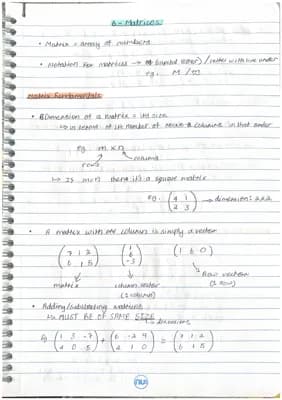 6 - Matrices
• Matrix = array of numbers
• Notation for matrices → (bold letter) / letter with line under
eg. M / m
Matrix Fundamentals
• Dimension of a matrix = its size
↳ in terms of its number of rows & columns in that order
eg. m × n
rows columns
↳ If m=n then it's a square matrix
eg. (4 1) → dimension: 2x2
(2 3)
• A matrix with one column is simply a vector
(7 1 2) (1) (1 6 0)
(6 1 5) (6)
(-3)
matrix column vector Row vector
(1 column) (1 row)
• Adding/subtracting matrices
↳ MUST BE OF SAME SIZE
dimensions
(1 3 -7) + (6 -2 9) = (7 1 2)
(4 0 5) (2 1 0) (6 1 5)